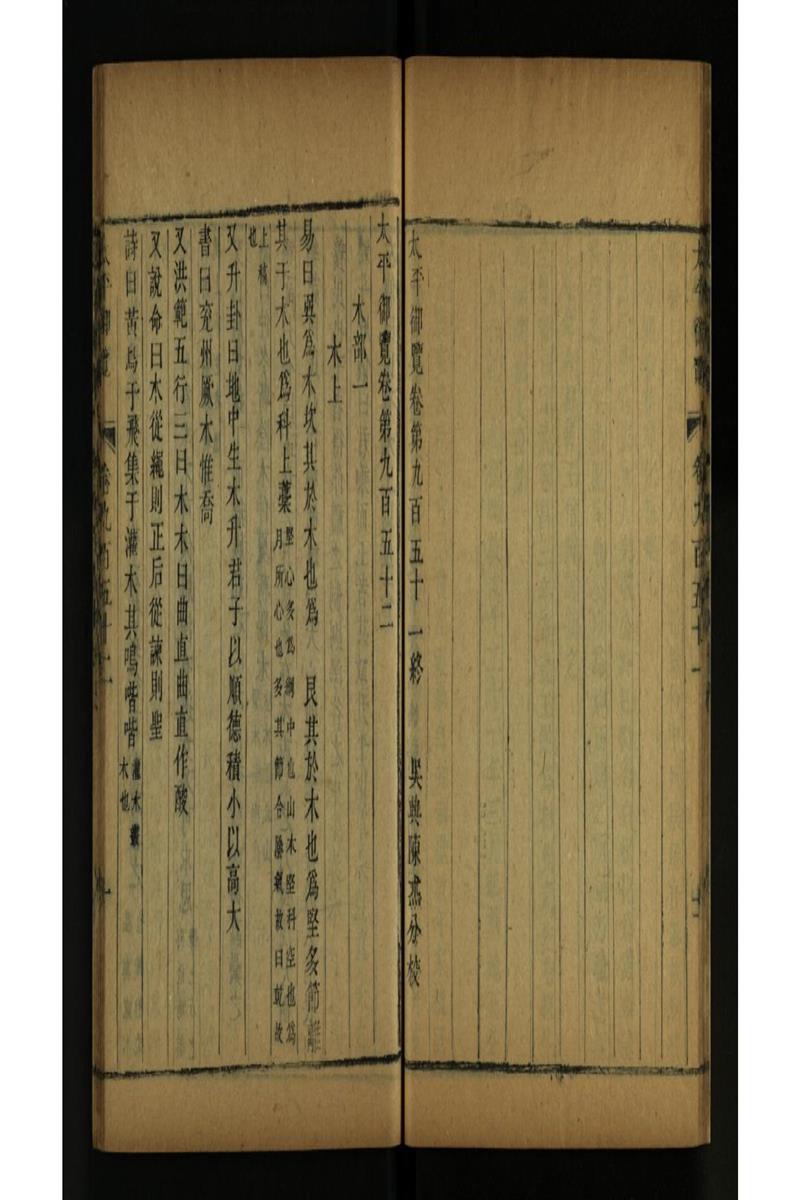 太平御覽 卷九百五十一
太平御覽卷第九百五十一終 吳興陳杰分校
太平御覽卷第九百五十二
木部一
木上
易曰巽為木坎其於木也為 艮其於木也為堅多節離
其于木也為科上藁
堅心多為綱中也山木堅科空也為
月所心也多其節合陰氣故曰乾故
上稿
也
又升卦曰地中生木升君子以順德積小以高大
書曰兖州厥木惟喬
又洪範五行三曰木木曰曲直曲直作酸
又說命曰木從繩則正后從諫則聖
詩曰黃鳥于飛集于灌木其鳴喈喈
灌木叢
木也
太平御覽 卷九百五十二 一